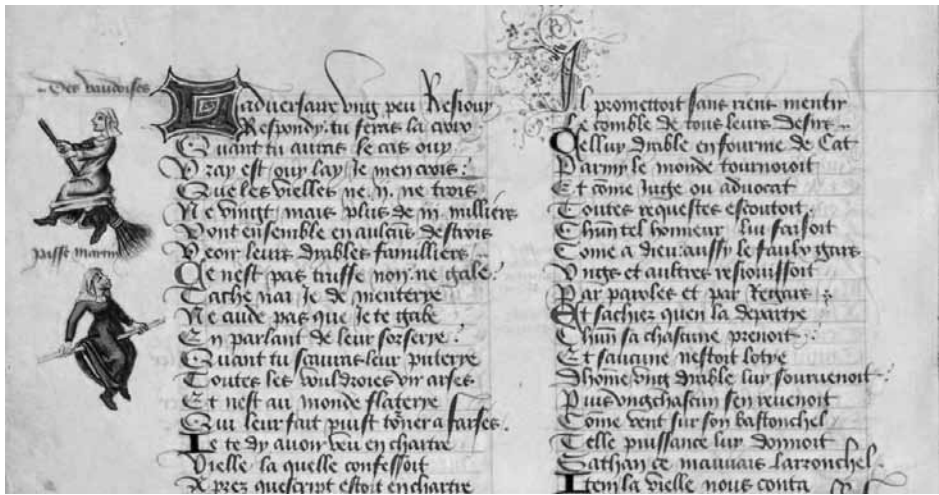 Des vaudoises
passe martin
L adversaire ung peu Resiouy
Respondy: tu feras la croix
Quant tu auras le cas ouy
Vray est ouy lay Je men crois:
Que les vielles ne .ii. ne trois
Ne vingt mais plus de .iii. milliers
Vont ensemble en aulcus destrois
Veoir leurs dyables familliers
Ce nest pas truffe non ne gale:
Tache nai Je de menterye
Ne cuide pas que Je te gabe
En parlant de leur sorserye:
Quant tu scauras leur puterye
Toutes les vouldroies vir arses
Et nest au monde flaterye
Qui leur fait puist torner a farses.
Je te dy avoir veu en chartre
Vielle la quelle confessoit
A prez quescript estoit en chartre
Il promettoit sans riens mentir
Le comble de tous leurs desirs
Celluy dyable en fourme de Cat
Parmy le monde tournoioit
Et come Juge ou advocat
Toutes requestes escoutoit
Chun tel honneur lui faisoit
Come a dieu: aussy le faulx gars
Ungs et aultres resiouissoit
Par paroles et par Regars:
Et sachiez quen la departie
Chun sa chascune prenoit:
Et saucune nestoit lotye
Dhome ung dyable luy sourvenoit:
Puis ung chascun sen revenoit
Come vent sur son bastonchel
Telle puissance luy donnoit
Sathan ce mauvais larronchel.
Item la vielle nous conta